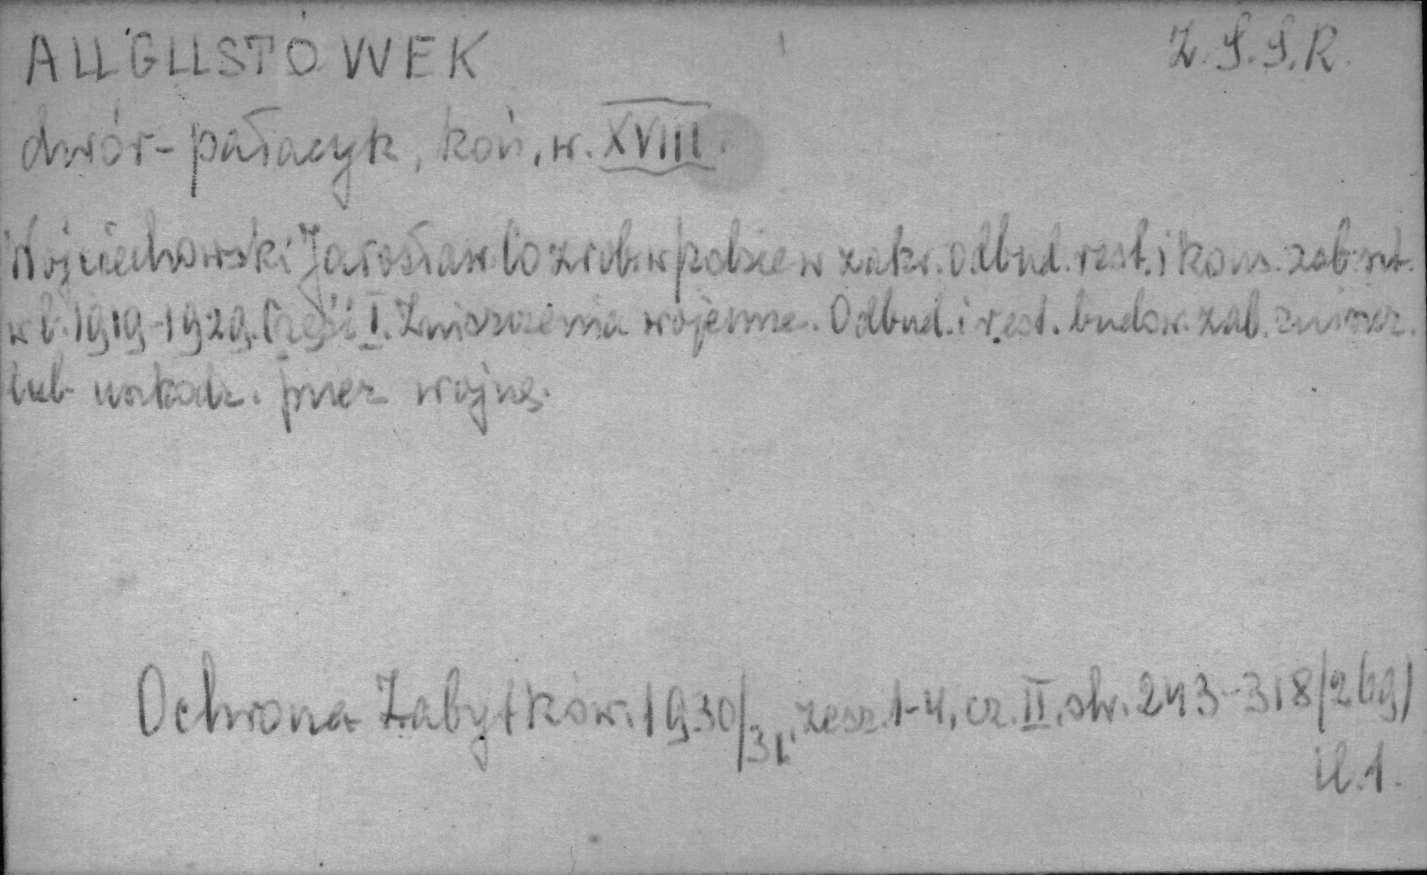 AUGUSTÓWEK Z.S.S.R.
dwór-pałacyk, koń. w. XVIII.
Wojciechowski Jarosław. Co zrob. w Polsce w zakr. odbud. rest. i kons. zab. szt.
w l. 1919-1929. Część I. Zniszczenia wojenne. Odbud. i rest. budow. zab. zniszcz.
lub uszkodz. przez wojnę.
Ochrona Zabytków. 1930/31, zesz. 1-4, cz. II, str. 243-318/269/
il. 1.